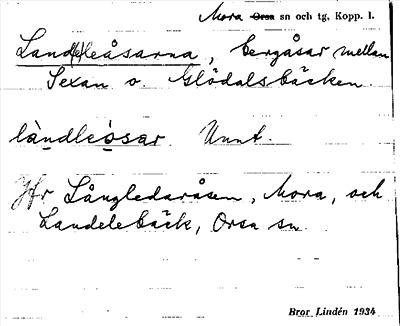 Mora Orsa sn och tg, Kopp. l.
Land(e)leåsarna, bergåsar mellan
Sexan o. Glödalsbäcken.
làndleòsar Unnt.
Jfr Långledaråsen, Mora, och
Landelebäck, Orsa sn
Bror Lindén 1934